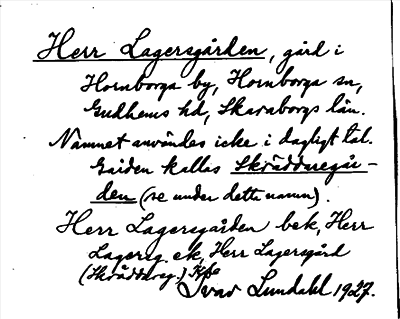 Herr Lagersgården, gård i
Hornborga by, Hornborga sn,
Gudhems hd, Skaraborgs län.
Namnet användes icke i dagligt tal.
Gården kallas Skräddaregår-
den (se under detta namn).
Herr Lagersgården bek, Herr
Lagersg. ek, Herr Lagersgård
(Skräddareg.) Kpa
Ivar Lundahl 1927.